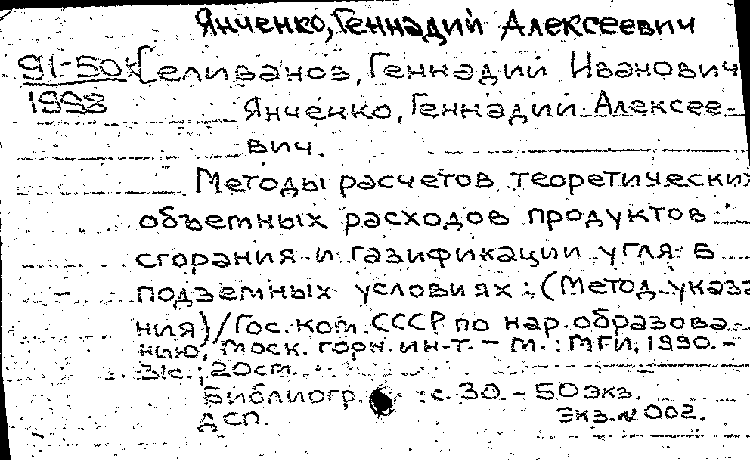 Янченко, Геннадий Алексеевич
91-50к Селиванов, Геннадий Иванович
1998 Янченко, Геннадий Алексее-
вич.
Методы расчетов теоретических
объемных расходов продуктов
сгорания и газификации угля в
подземных условиях: (Метод. указа
ния) / Гос. ком. СССР по нар. образова-
нию, Моск. горн. ин-т. - М.: МГИ, 1990. -
31с.; 20см.
Библиогр.: с. 30. - 50 экз.
ДСП. Экз. № 002.